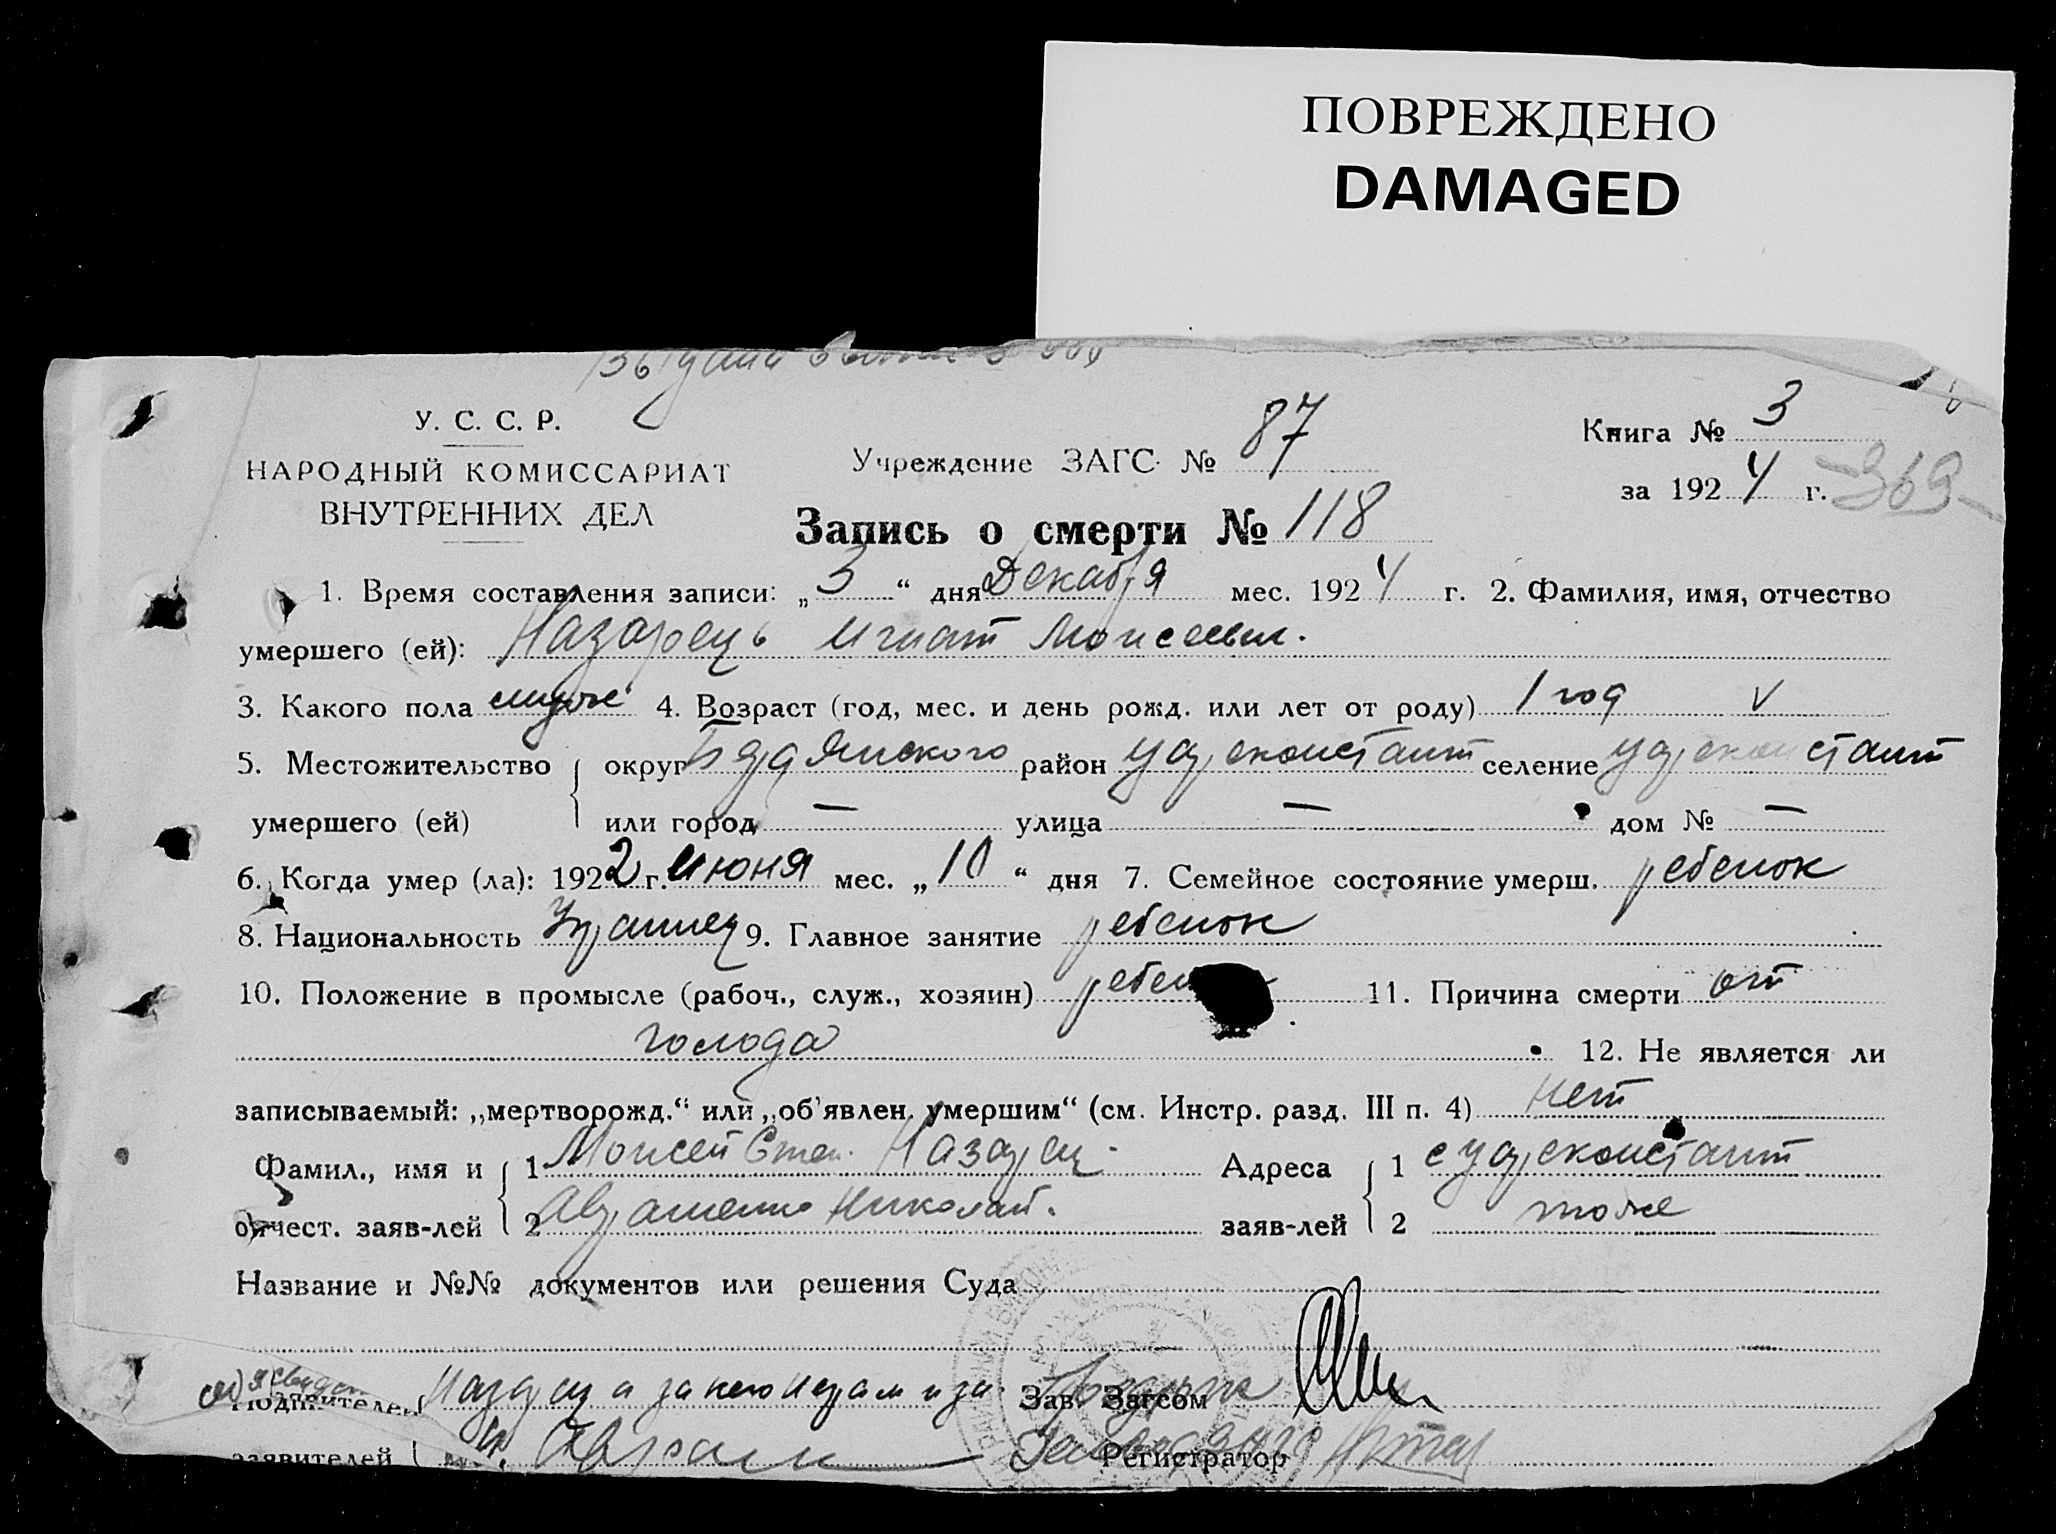 ПОВРЕЖДЕНО
DAMAGED
У. С. С. Р.
НАРОДНЫЙ КОМИССАРИАТ
ВНУТРЕННИХ ДЕЛ
Учреждение ЗАГС № 87
Книга № 3
за 1924 г. 369
Запись о смерти № 118
1. Время составления записи: „3“ дня Декабря мес. 1924 г. 2. Фамилия, имя, отчество
умершего (ей): Назарець Игнат Моисеевич.
3. Какого пола мужс 4. Возраст (год, мес. и день рожд. или лет от роду) 1 год V
5. Местожительство округ Бердянского район Цареконстант селение Цареконстант
умершего (ей) или город — улица — дом № —
6. Когда умер (ла): 1922 г. июня мес. „10“ дня 7. Семейное состояние умерш. ребенок
8. Национальность Украинец 9. Главное занятие ребенок
10. Положение в промысле (рабоч., служ., хозяин) ребенок 11. Причина смерти от
голода 12. Не является ли
записываемый: „мертворожд.“ или „об'явлен. умершим“ (см. Инстр. разд. III п. 4) нет
Фамил., имя и 1 Моисей Степ. Назарец. Адреса 1 с Цареконстант
отчест. заяв-лей 2 Авраменко Николай. заяв-лей 2 тоже
Название и №№ документов или решения Суда
Назарец а за него неграм Зав. Загсом
заявителей Регистратор